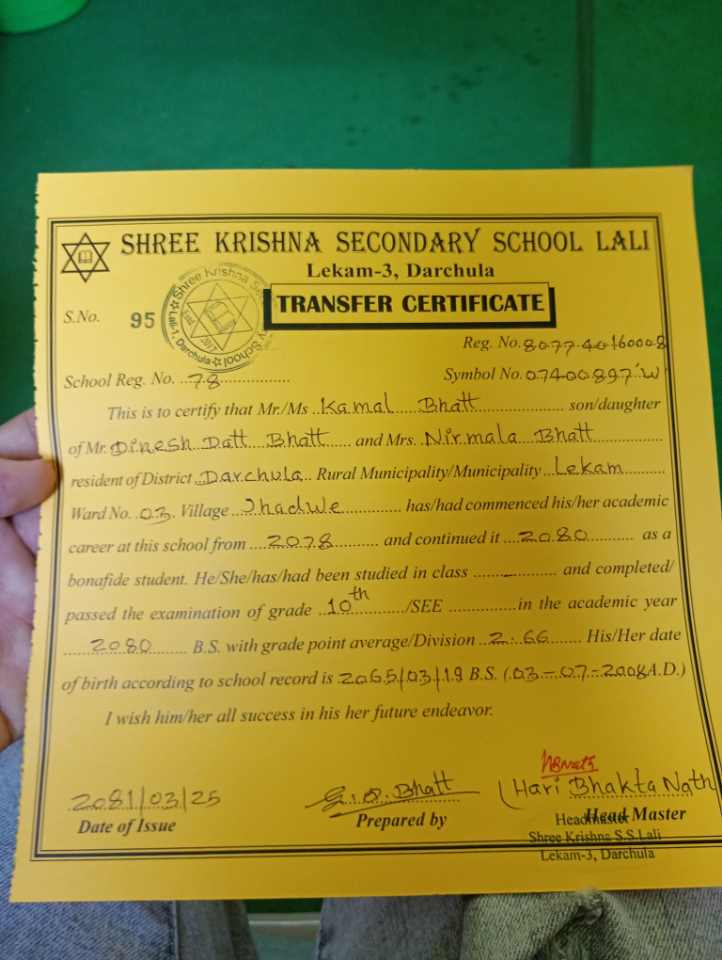 SHREE KRISHNA SECONDARY SCHOOL LALI
Lekam-3, Darchula
TRANSFER CERTIFICATE
S.No. 95
Reg. No. 807740160008
School Reg. No. 78
Symbol No. 07400897 'W'
This is to certify that Mr./Ms. Kamal Bhatt son/daughter
of Mr. Dinesh Datt Bhatt and Mrs. Nirmala Bhatt
resident of District Darchula Rural Municipality/Municipality Lekam
Ward No. 03 Village has/had commenced his/her academic
career at this school from 2078 and continued it 2080 as a
bonafide student. He/She/has/had been studied in class - and completed/
passed the examination of grade 10th /SEE in the academic year
2080 B.S. with grade point average/Division 2.66 His/Her date
of birth according to school record is 2065/03/19 B.S. (03-07-2008A.D.)
I wish him/her all success in his her future endeavor.
2081/03/25
Date of Issue
Bhatt
Prepared by
(Hari Bhakta Nath
Head Master
Headmaster
Shree Krishna S.S. Lali
Lekam-3, Darchula